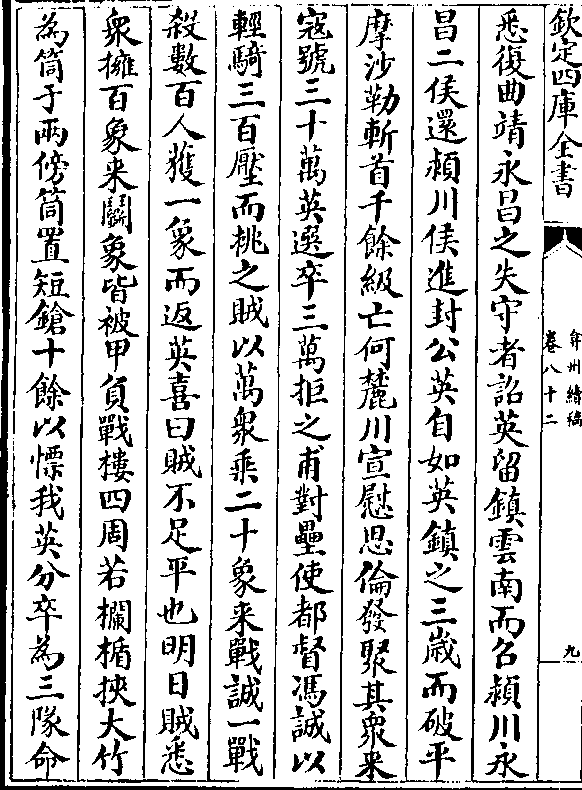 欽定四庫全書
弇州續稿
卷八十二
九
悉復曲靖永昌之失守者詔英留鎮雲南而召潁川永
昌二侯還潁川侯進封公英自如英鎮之三歲而破平
摩沙勒斬首千餘級亡何麓川宣慰思倫發聚其衆来
寇號三十萬英選卒三萬拒之甫對壘使都督馮誠以
輕騎三百壓而挑之賊以萬衆乘二十象来戰誠一戰
殺數百人獲一象而返英喜曰賊不足平也明日賊悉
衆擁百象来鬬象皆被甲負戰樓四周若欄楯挾大竹
為筒于兩傍筒置短鎗十餘以慓我英分卒為三隊命